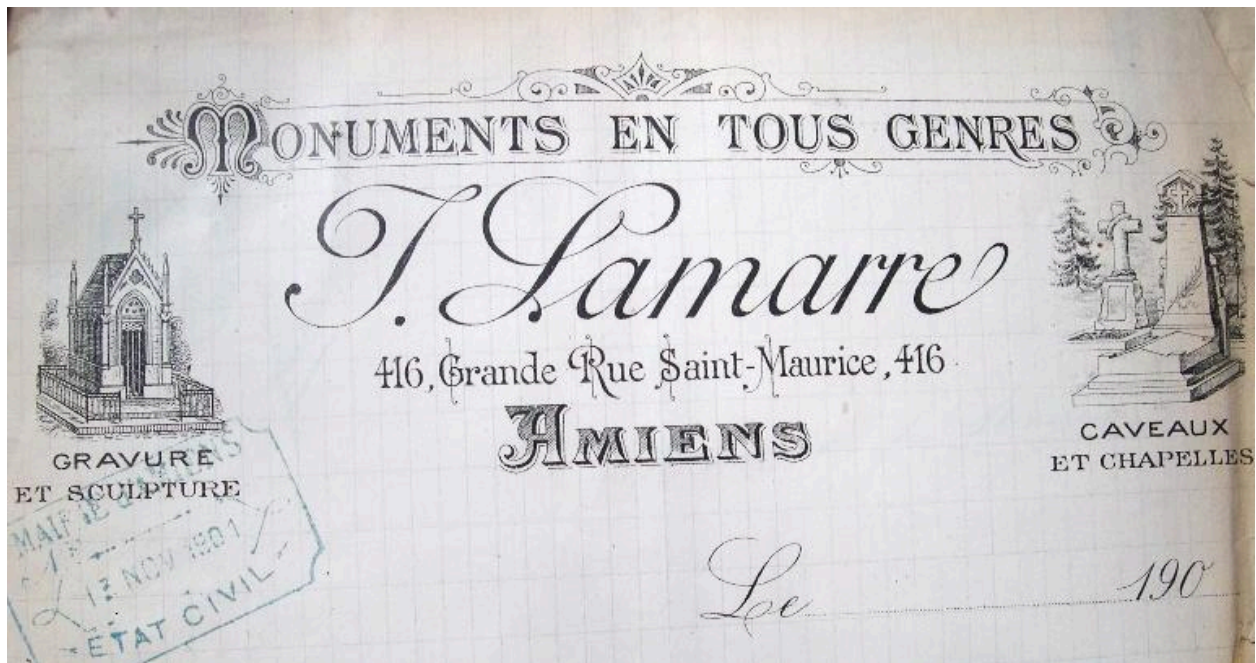 MONUMENTS EN TOUS GENRES
J. Lamarre
416, Grande Rue Saint-Maurice, 416
AMIENS
GRAVURE
ET SCULPTURE
CAVEAUX
ET CHAPELLES
MAIRIE D'AMIENS
NOV 1901
ETAT CIVIL
Le 190